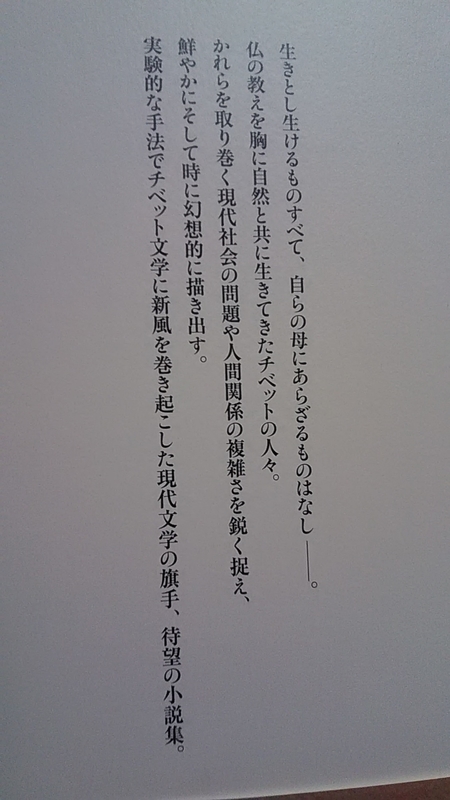 生きとし生けるものすべて、自らの母にあらざるものはなし――。
仏の教えを胸に自然と共に生きてきたチベットの人々。
かれらを取り巻く現代社会の問題や人間関係の複雑さを鋭く捉え、
鮮やかにそして時に幻想的に描き出す。
実験的な手法でチベット文学に新風を巻き起こした現代文学の旗手、待望の小説集。